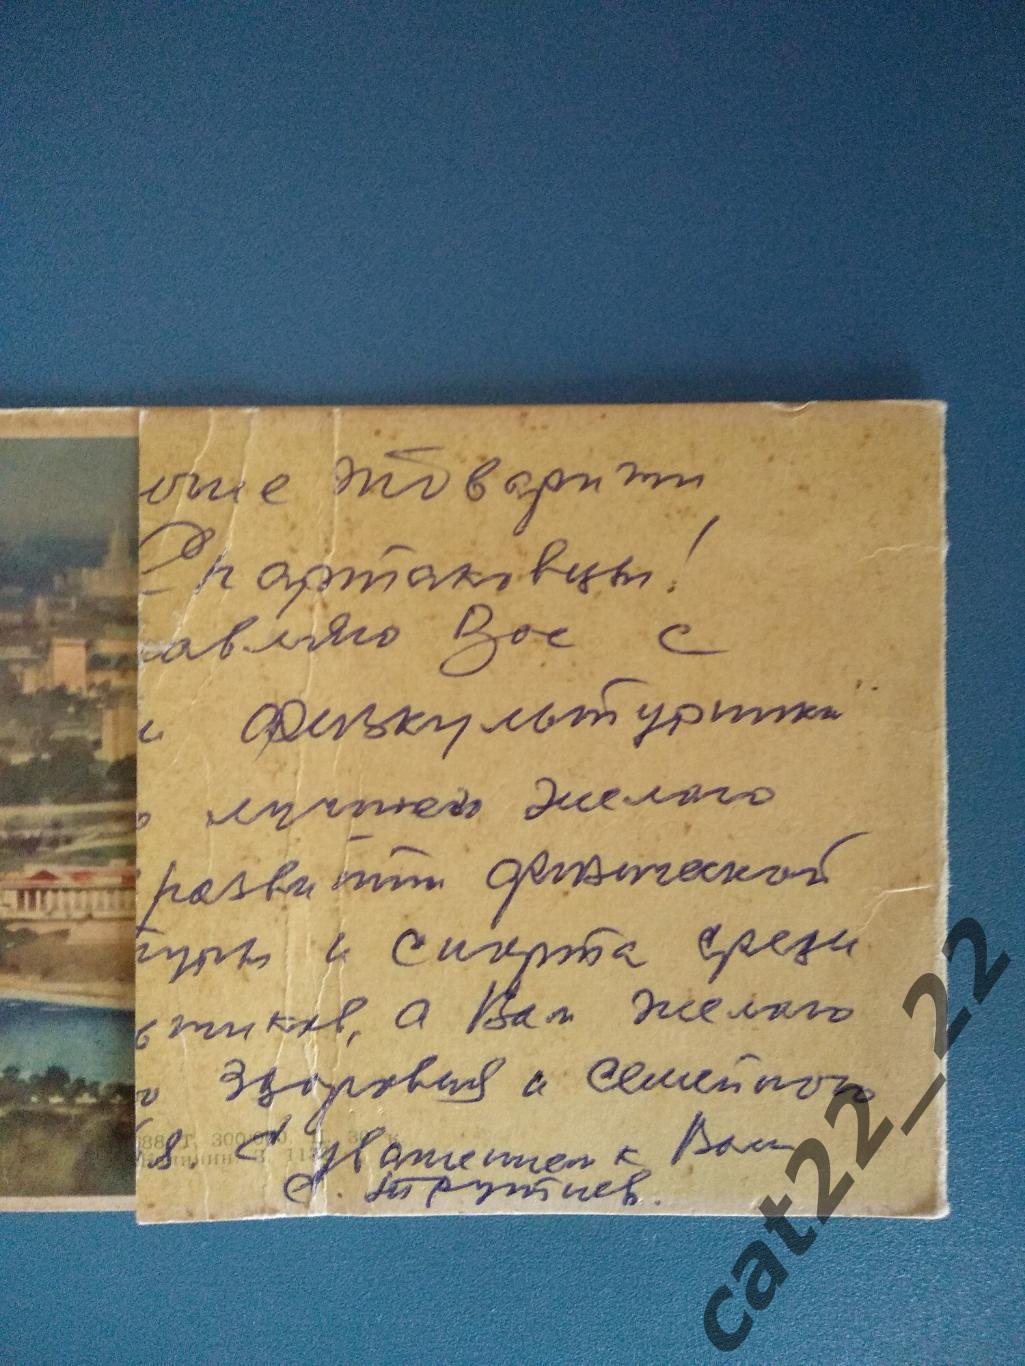 огие товарищи
Спартаковцы!
авляю Вас с
и физкультурника
о лучшего желаю
развитии физической
туры и спорта среди
ьтников, а Вам желаю
о здоровия и семейного
я. С уважением к Вам
С.
88 Т. 300.000
cat22_22